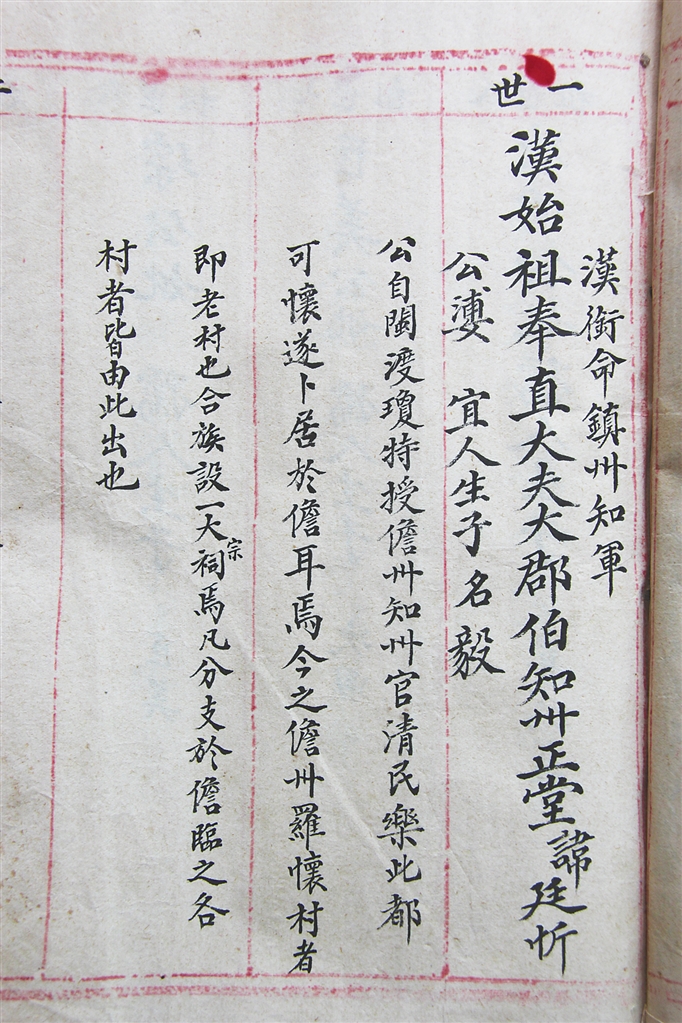 一世
漢銜命鎮州知軍
漢始祖奉直大夫大郡伯知州正堂諱廷忻
公婆 宜人生子名毅
公自閩渡瓊特授儋州知州官清民樂此都
可懷遂卜居於儋耳焉今之儋州羅懷村者
即老村也合族設一大宗祠焉凡分支於儋臨之各
村者皆由此出也